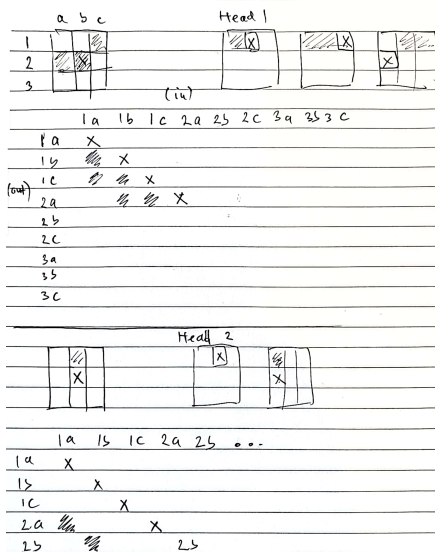 a b c Head 1
1 X X
2 X X
3
(in)
1a 1b 1c 2a 2b 2c 3a 3b 3c
1a X
1b X
1c X
(out)
2a X
2b
2c
3a
3b
3c
Head 2
X
X X
1a 1b 1c 2a 2b ...
1a X
1b X
1c X
2a X
2b 2b